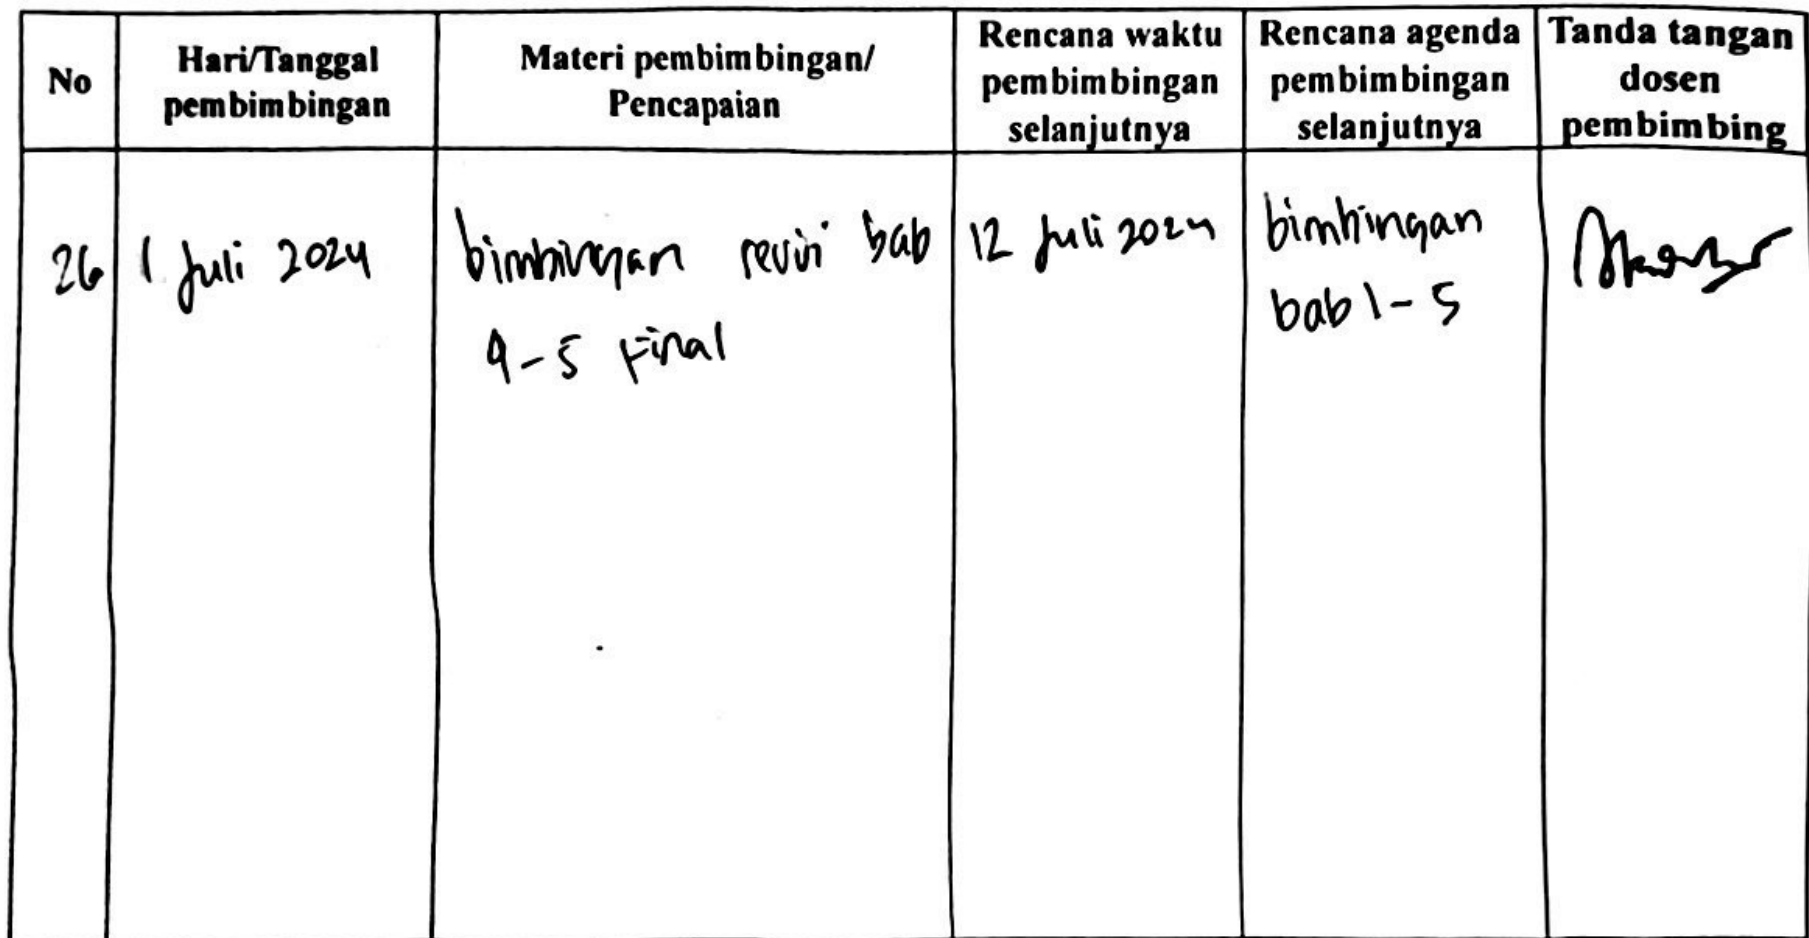 No
Hari/Tanggal
pembimbingan
Materi pembimbingan/
Pencapaian
Rencana waktu
pembimbingan
selanjutnya
Rencana agenda
pembimbingan
selanjutnya
Tanda tangan
dosen
pembimbing
26
1 Juli 2024
bimbingan revisi bab
4-5 Final
12 Juli 2024
bimbingan
bab 1-5